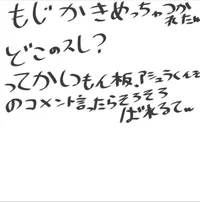 もじかきめっちゃつか
れたw
どこのスレ?
ってかしつもん板.アシュラくんそ
のコメント言ったらそろそろ
ばれるてw